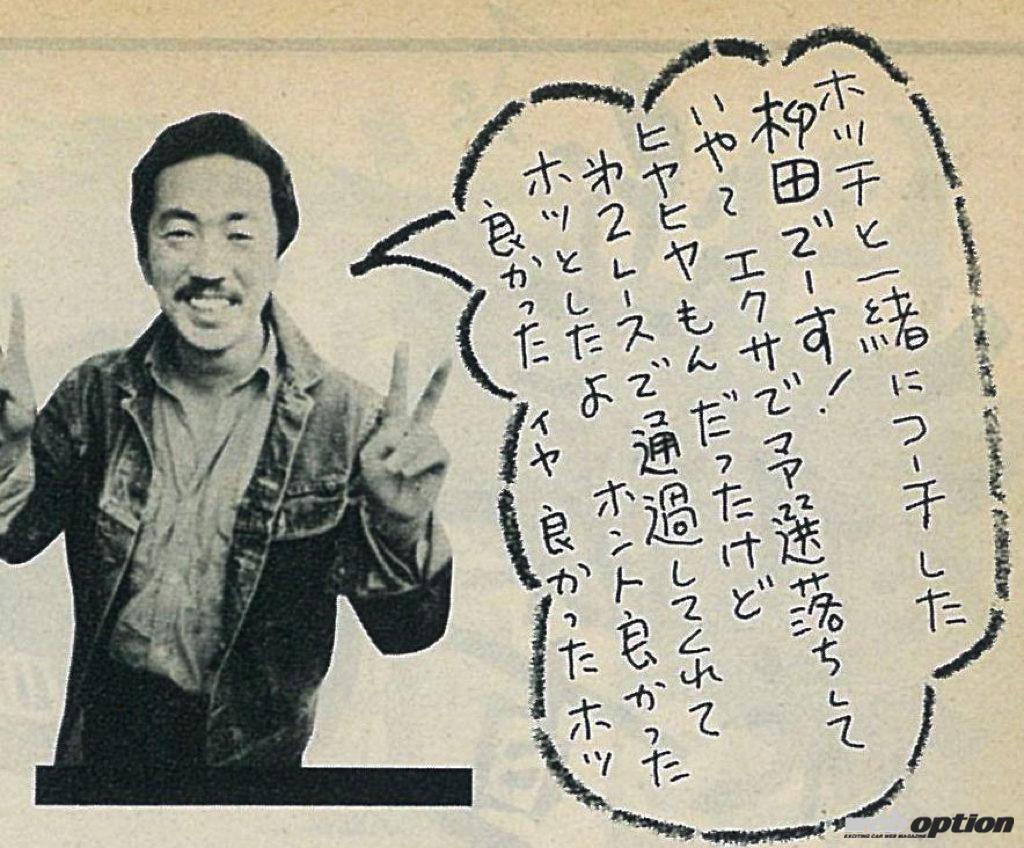 ホッチと一緒につーチした
柳田でーす!
いやてエクサでマア選落ちして
ヒヤヒヤもんだったけど
第2レースで通過してくれて
ホッとしたよ ホント良かった
良かった ィヤ良かったホッ
option
EXCITING CAR WEB MAGAZINE